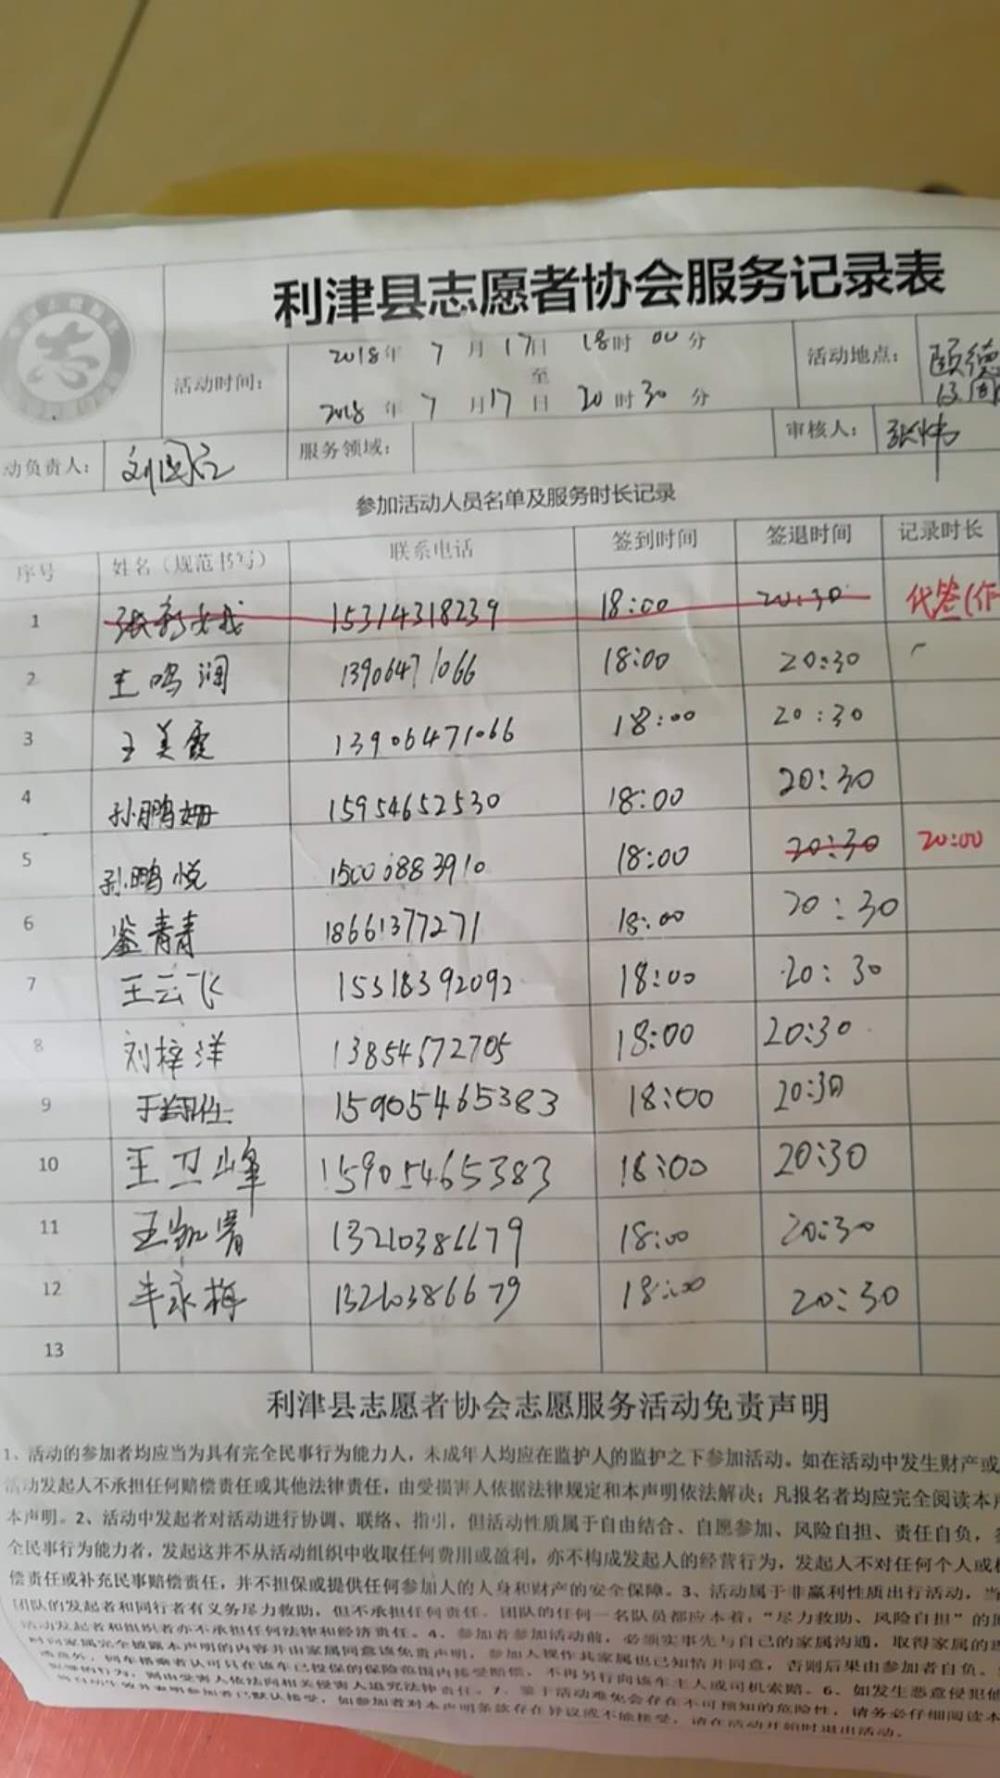 利津县志愿者协会服务记录表
志
活动时间：
2018年 7 月 17日 18时 00分
至
2018 年 7 月 17 日 20时30 分
活动地点：
颐德
动负责人：
服务领域：
审核人：
张炜
参加活动人员名单及服务时长记录
序号 姓名（规范书写） 联系电话 签到时间 签退时间 记录时长
1 15314318239 18:00 20:30 代签(作
2 王鸣润 13906471066 18:00 20:30
3 王美霞 13906471066 18:00 20:30
4 孙鹏姗 15954652530 18:00 20:30
5 孙鹏悦 18:00 20:30 20:00
6 鉴青青 18661377271 18:00 20:30
7 王云飞 15318392092 18:00 20:30
8 刘梓洋 13854672705 18:00 20:30
9 15905465383 18:00 20:30
10 王卫峰 15905465383 18:00 20:30
11 13210386679 18:00 20:30
12 牛永梅 13210386679 18:00 20:30
13
利津县志愿者协会志愿服务活动免责声明
1、活动的参加者均应当为具有完全民事行为能力人，未成年人均应在监护人的监护之下参加活动。如在活动中发生财产或
活动发起人不承担任何赔偿责任或其他法律责任，由受损害人依据法律规定和本声明依法解决；凡报名者均应完全阅读本声
本声明。2、活动中发起者对活动进行协调、联络、指引，但活动性质属于自由结合、自愿参加、风险自担、责任自负，
全民事行为能力者，发起这并不从活动组织中收取任何费用或盈利，亦不构成发起人的经营行为，发起人不对任何个人或
偿责任或补充民事赔偿责任，并不担保或提供任何参加人的人身和财产的安全保障。3、活动属于非赢利性质出行活动，当
团队的发起者和同行者有义务尽力救助，但不承担任何责任。团队的任何一名队员都应本着：“尽力救助、风险自担”的
活动发起者和组织者亦不承担任何法律和经济责任。4、参加者参加活动前，必须实事先与自己的家属沟通，取得家属的
时向家属完全披露本声明的内容并由家属同意该免责声明，参加人视作其家属也已知情并同意，否则后果由参加者自负。
意外，伺车搭乘者认可只在该车已投保的保险范围内接受赔偿，不再另行向该车主人或司机索赔。6、如发生恶意侵犯他
犯罪的行为，则由受害人依法向相关侵害人追究法律责任。7、鉴于活动难免会存在不可预知的危险性，请务必仔细阅读本
参加者已默认接受，如参加者对本声明条款存在异议或不能接受，请在活动开始时退出活动。